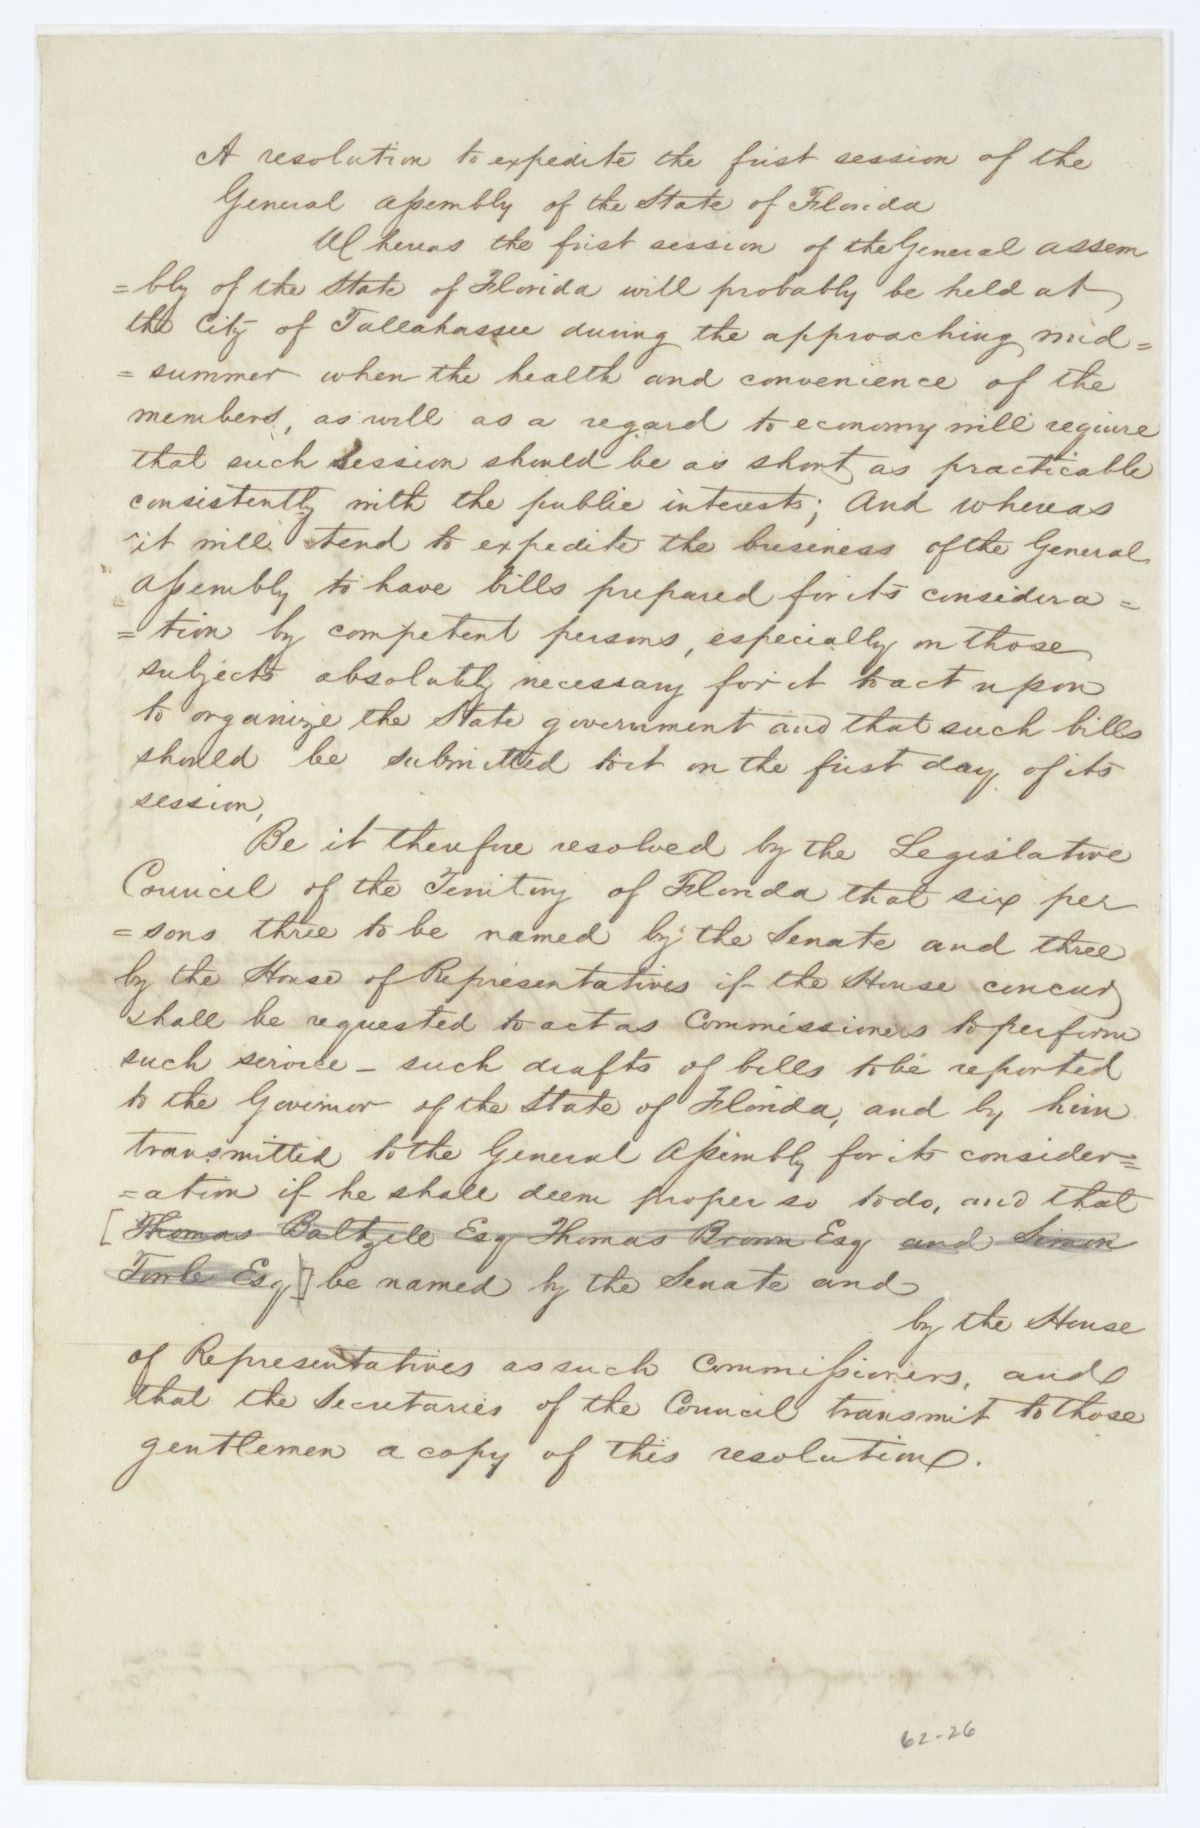 A resolution to expedite the first session of the
General Assembly of the State of Florida
Whereas the first session of the General assem
=bly of the State of Florida will probably be held at
the City of Tallahassee during the approaching mid=
=summer when the health and convenience of the
members, as well as a regard to economy will require
that such session should be as short as practicable
consistently with the public interests; And whereas
it will tend to expedite the business of the General
Assembly to have bills prepared for its considera=
=tion by competent persons, especially on those
subjects absolutely necessary for it to act upon
to organize the State government and that such bills
should be submitted to it on the first day of its
session,
Be it therefore resolved by the Legislative
Council of the Territory of Florida that six per
=sons three to be named by the Senate and three
by the House of Representatives if the House concur
shall be requested to act as Commissioners to perform
such service – such drafts of bills to be reported
to the Governor of the State of Florida, and by him
transmitted to the General Assembly for its consider=
=ation if he shall deem proper so to do, and that
[Thomas Baltzell Esq Thomas Brown Esq and Simon
Towle Esq] be named by the Senate and
by the House
of Representatives as such Commissioners, and
that the Secretaries of the Council transmit to those
gentlemen a copy of this resolution.
62-26